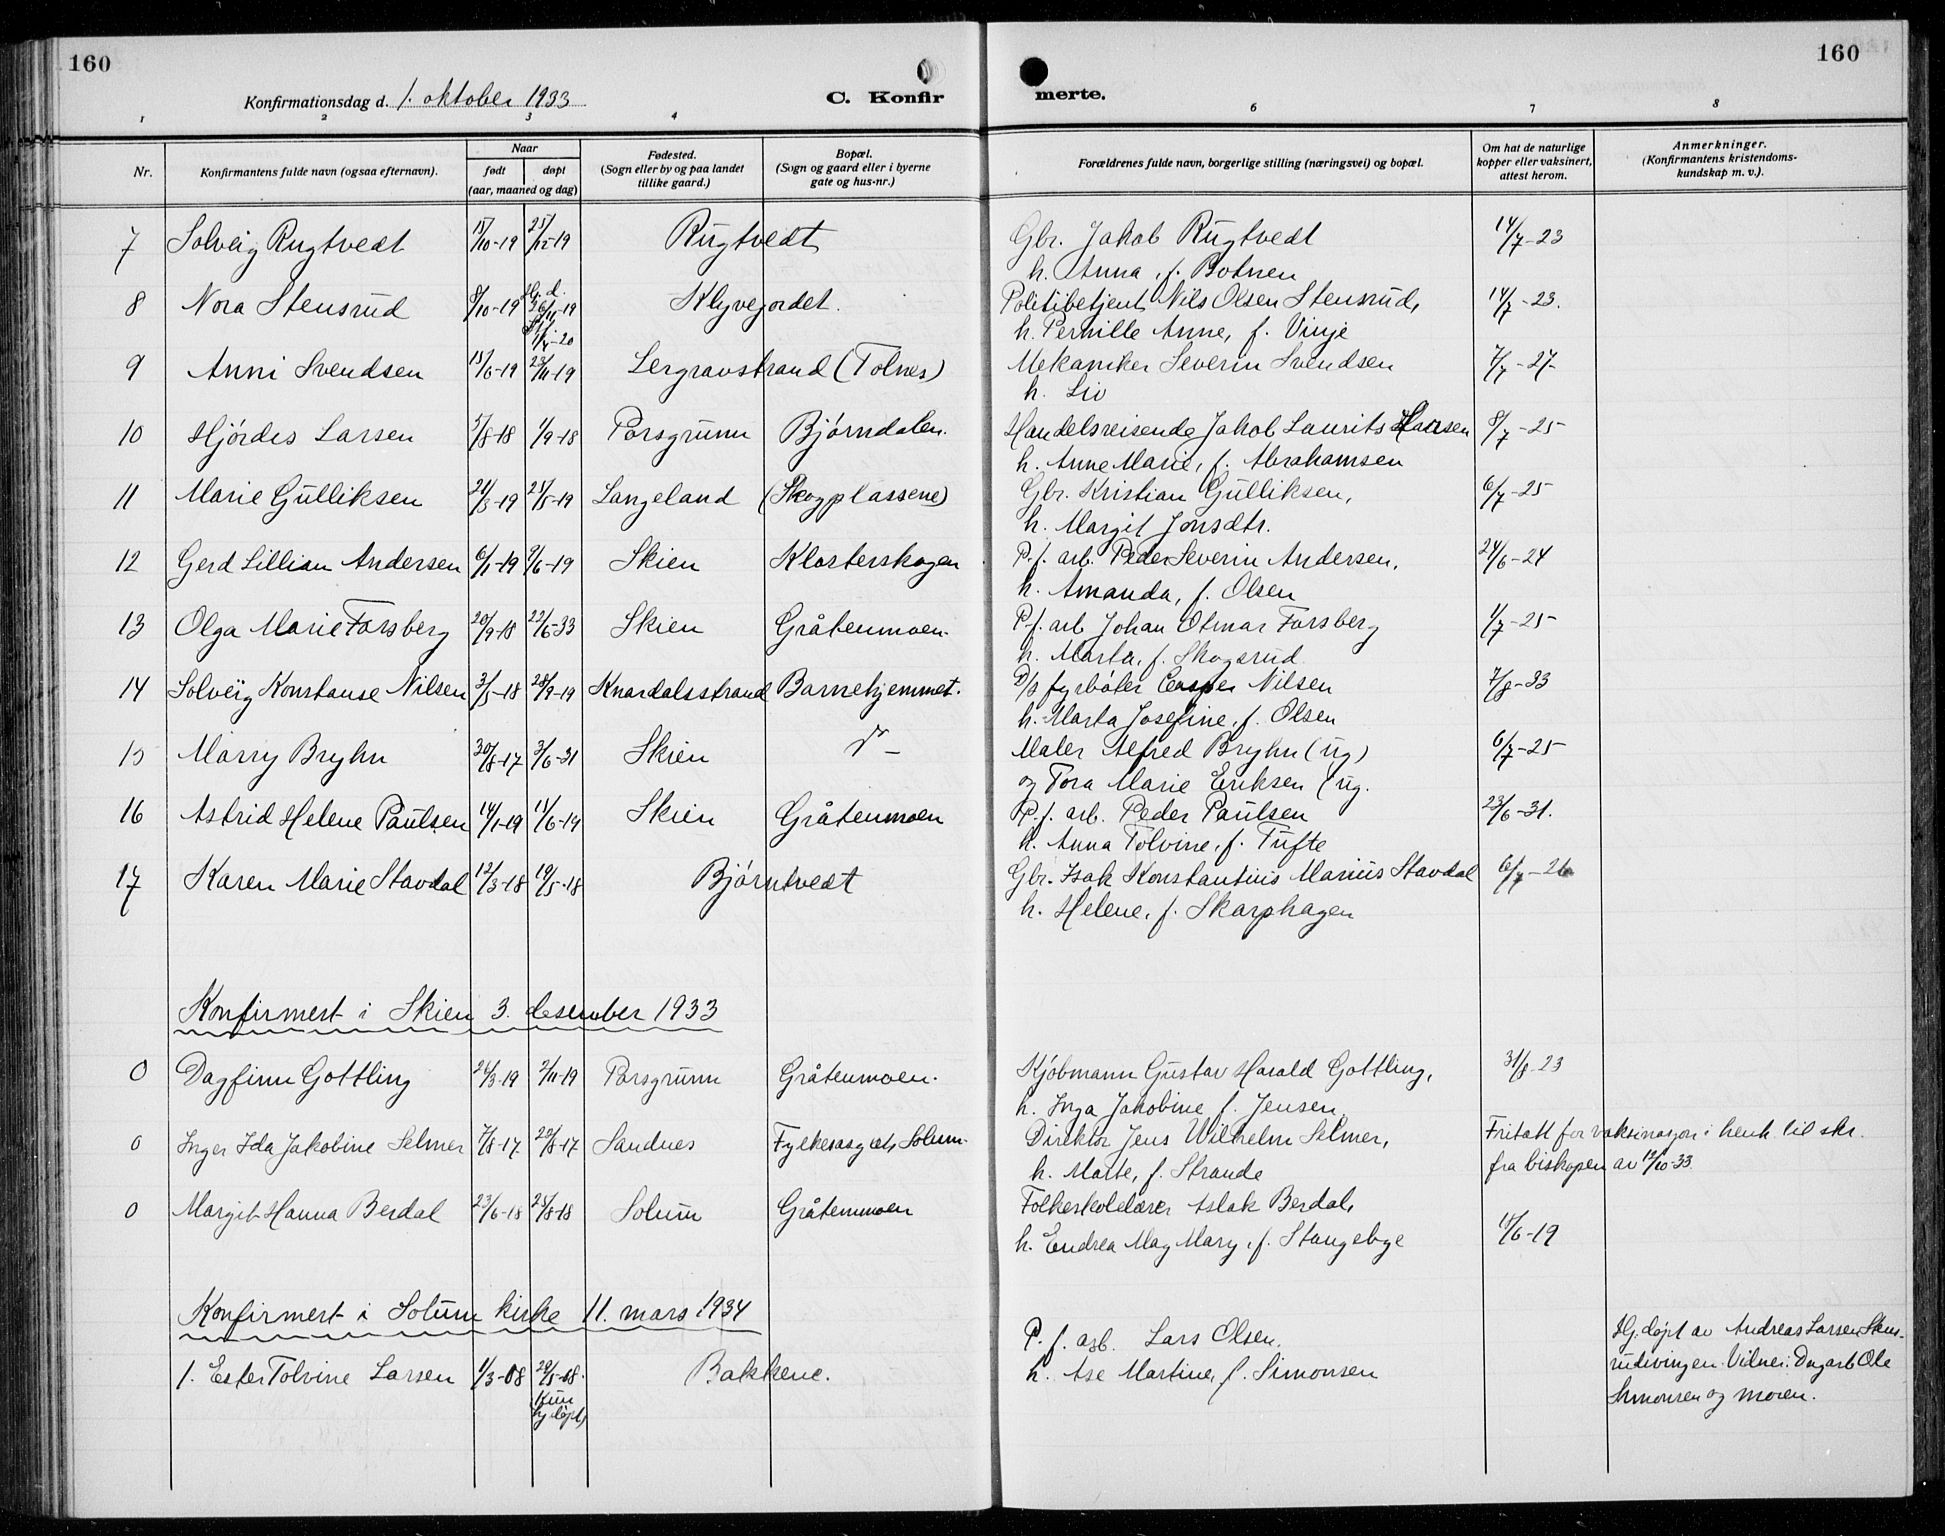 160
160
Konfirmationsdag d. 1. oktober 1933
C. Konfir
merte.
1 2 3 4 6 7 8
Nr.
Konfirmantens fulde navn (ogsaa efternavn).
Naar
født døpt
(aar, maaned og dag)
Fødested.
(Sogn eller by og paa landet
tillike gaard.)
Bopæl.
(Sogn og gaard eller i byerne
gate og hus-nr.)
Forældrenes fulde navn, borgerlige stilling (næringsvei) og bopæl.
Om hat de naturlige
kopper eller vaksinert,
attest herom.
Anmerkninger.
(Konfirmantens kristendoms-
kundskap m. v.).
7 Solveig Rugtvedt 15/10-19 25/12-19 Rugtvedt Gbr. Jakob Rugtvedt 14/7-23
h. Anna, f. Botnen
8 Nora Stensrud 8/10-19 Hj.d. Klyvejordet. Politibetjent Nils Olsen Stensrud, 14/7-23.
h. Pernille Anne, f. Vinje
9 Anni Svendsen 15/6-19 23/11-19 Lergravstrand (Tolnes) Mekaniker Severin Svendsen 7/7-27
h. Liv
10 Hjórdis Larsen 5/8-18 1/9-18 Porsgrunn Bjórndalen. Handelsreisende Jakob Laurits 8/7-25
h. Anne Marie, f. Abrahamsen
11 Marie Gulliksen 21/3-19 25/5-19 Langeland (Skogplassene) Gbr. Kristian Gulliksen, 6/7-25
h. Margit Jonsdtr.
12 Gerd Lillian Andersen 6/1-19 9/6-19 Skien Klosterskogen P.f. arb. Peder Severin Andersen, 24/6-24
h. Amanda, f. Olsen
13 Olga Marie Forsberg 20/9-18 22/6-33 Skien Gråtenmoen. P.f. arb Johan Otmar Forsberg 1/7-25
h. Marta, f. Skogsrud
14 Solveig Konstanse Nilsen 3/5-18 28/9-19 Knardalsstrand Barnehjemmet. D/s fyrbóter Casper Nilsen 7/8-33
h. Marta Josefine, f. Olsen
15 Marry Bryhn 30/8-17 3/6-31 Skien do - Maler Alfred Bryhn (ug) 6/7-25
og Tora Marie Eriksen (ug.
16 Astrid Helene Paulsen 14/1-19 11/6-19 Skien Gråtenmoen P.f. arb. Peder Paulsen 23/6-31.
h. Anna Tolvine, f. Tufte
17 Karen Marie Stavdal 12/3-18 19/5-18 Bjórntvedt Gbr. Isak Konstantius Marius Stavdal 6/7-26
h. Helene, f. Skarphagen
Konfirmert i Skien 3. desember 1933
0 Dagfinn Gottling 24/3-19 2/11-19 Porsgrunn Gråtenmoen. Kjóbmann Gustav Harald Gottling, 31/8-23
h. Inga Jakobine f. Jensen
0 Inger Ida Jakobine Selmer 7/8-17 Sandnes Solum. Direktór Jens Wilhelm Selmer, Fritatt for vaksinasjon i henh. til skr.
h. Marte, f. Strande fra biskopen av 12/10-33.
0 Margit Hanna Berdal 23/6-18 25/8-18 Solum Gråtenmoen Folkeskolelærer Aslak Berdal,
h. Endrea May Mary, f. Stangebye 11/6-19
Konfirmert i Solum kirke 11. mars 1934
1. Ester Tolvine Larsen 1/3-08 Bakkene. P.f. arb. Lars Olsen,
h. Ase Martine, f. Simonsen
Kun
hj.døpt)
Hj.døpt av Andreas Larsen Stens-
rudvingen. Vitner: Dagarb Ole
Simonsen og moren.